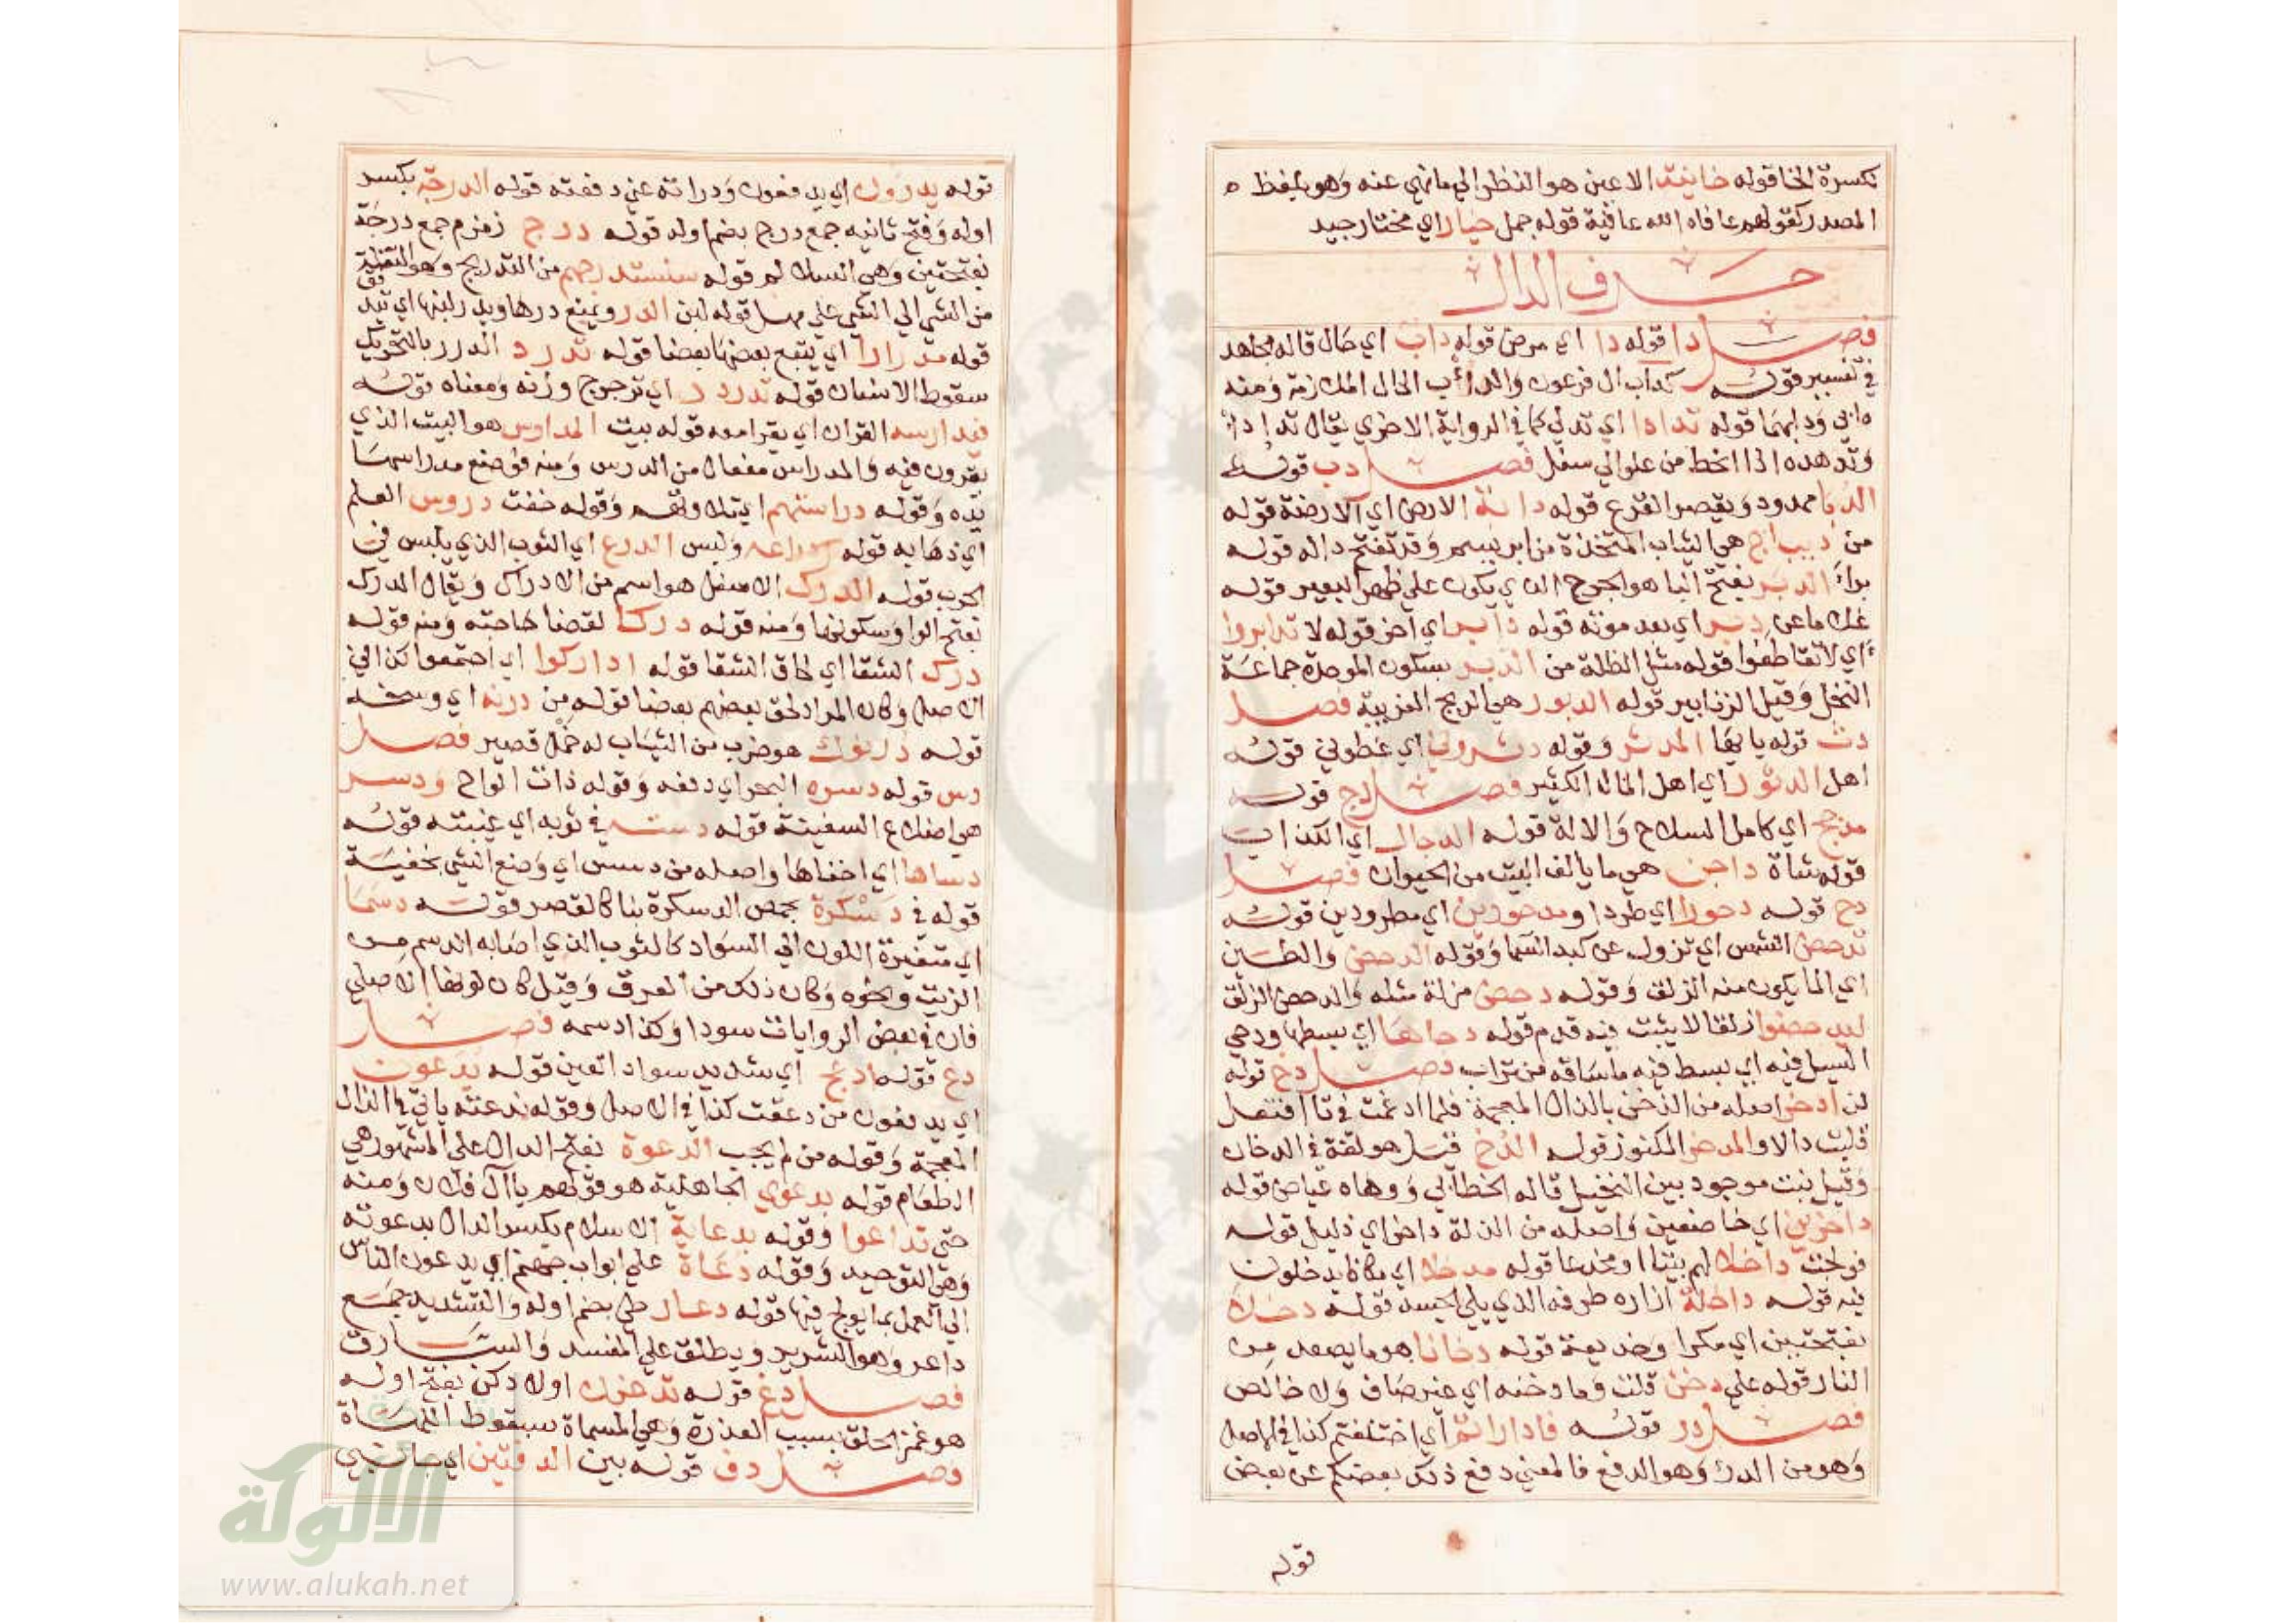 بكسرة الخا قوله خاينة الاعين هو النظر الي ما نهي عنه وهو بلفظ ه
المصدر كقولهم عافاه الله عافية قوله جمل خيارا اي مختار جيد
حرف الدال
فصل دا قوله دا اي مرض قوله داب اي حال قاله مجاهد
في تفسير قوله كداب ال فرعون والدأب الحال الملازمة ومنه
دابي ودابهما قوله تدادا اي تدلي كما في الرواية الاخري يقال تدادا
وتدهده اذا انحط من علو الي سفل فصل دب قوله
الدبا ممدود ويقصر القرع قوله دابة الارض اي الارضة قوله
من ديباج هي الثياب المتخذة من ابريسم وقد تفتح داله قوله
برا الدبر بفتح البا هو الجرح الذي يكون علي ظهر البعير قوله
غلاما عن دبر اي بعد موته قوله دابر اي اخر قوله لا تدابروا
اي لا تقاطعوا قوله مثل الظلة من الدبر بسكون الموحدة جماعة
النحل وقيل الزنابير قوله الدبور هي الريح الغربية فصل
دث قوله يا ايها المدثر وقوله دثروني اي غطوني قوله
اهل الدثور اي اهل المال الكثير فصل دج قوله
مدجج اي كامل السلاح والالة قوله الدجال اي الكذاب
قوله شاة داجن هي ما يالف البيت من الحيوان فصل
دح قوله دحورا اي طردا ومدحورين اي مطرودين قوله
تدحض الشمس اي تزول عن كبد السما وقوله الدحض والطين
اي الما يكون منه الزلق وقوله دحض مزلة مثله والدحض الزلق
ليدحضوا زلقا لا يثبت فيه قدم قوله دحاها اي بسطها ودحي
السيل فيه اي بسط فيه ما ساقه من تراب فصل دخ قوله
لن ادخر اصله من الذخر بالذال المعجمة فلما ادغمت في تا افتعل
قلبت دالا والمدخر المكنوز قوله الدخ قيل هو لغة في الدخان
وقيل نبت موجود بين النخيل قاله الخطابي ووهاه عياض قوله
داخرين اي خاضعين واصله من الذلة داخر اي ذليل قوله
فولجت داخلا لهم بيتا او مخدعا قوله مدخلا اي مكانا يدخلون
فيه قوله داخلة ازاره طرفه الذي يلي الجسد قوله دخلا
بفتحتين اي مكرا وخديعة قوله دخانا هو ما يصعد من
النار قوله علي دخن قلت وما دخنه اي غير صاف ولا خالص
فصل در قوله فاداراتم اي اختلفتم كذا في الاصل
وهو من الدرء وهو الدفع فالمعني دفع ذلك بعضكم عن بعض
قوله
قوله يدرون اي يدفعون ودراته عني دفعته قوله الدرجة بكسر
اوله وفتح ثانيه جمع درج بضم اوله قوله درج زمزم جمع درجة
بفتحتين وهي السلالم قوله سنستدرجهم من التدريج وهو التنقل
من الشي الي الشي علي مهل قوله لبن الدر ويمنع درها ويدر لبنها اي
قوله مدرارا اي يتبع بعضها بعضا قوله تدرد الدرر بالتحريك
سقوط الاسنان قوله تدردر اي ترجرج وزنه ومعناه قوله
فيدارسه القران اي يقرا معه قوله بيت المدارس هو البيت الذي
يقرون فيه والمدراس مفعال من الدرس ومنه فوضع مدراسها
يده وقوله دراستهم اي تلاوتهم وقوله خفت دروس العلم
اي ذهابه قوله دراعه ولبس الدرع اي الثوب الذي يلبس في
الحرب قوله الدرك الاسفل هو اسم من الادراك ويقال الدرك
بفتح الرا وسكونها ومنه قوله دركا لقضا حاجته ومنه قوله
درك الشقا اي لحاق الشقا قوله اداركوا اي اجتمعوا كذا في
الاصل وكان المراد لحق بعضهم بعضا قوله من درنه اي وسخه
قوله درنوك هو ضرب من الثياب له خمل قصير فصل
دس قوله دسره البحر اي دفعه وقوله ذات الواح ودسر
هي اضلاع السفينة قوله دسته في ثوبه اي غيبته قوله
دساها اي اخفاها واصله من دسس اي وضع الشي بخفية
قوله في دسكرة بحمص الدسكرة بنا كالقصر قوله دسما
اي متغيرة اللون الي السواد كالثوب الذي اصابه الدسم من
الزيت ونحوه وكان ذلك من العرق وقيل كان لونها الاصلي
فان في بعض الروايات سودا وكذا دسمه فصل
دع قوله ادعج اي شديد سواد العين قوله يدعون
اي يدفعون من دععت كذا في الاصل وقوله ندعته ياتي في الذال
المعجمة وقوله من لم يجب الدعوة بفتح الدال علي المشهور هي
الطعام قوله بدعوي الجاهلية هو قولهم يا آل فلان ومنه
حتي تداعوا وقوله بدعاية الاسلام بكسر الدال بدعوته
وهي التوحيد وقوله دعاة علي ابواب جهنم اي يدعون الناس
الي العمل بما يولج فيها قوله دعار طي بضم اوله والتشديد جمع
داعر وهو الشرير ويطلق علي المفسد والسارق
فصل دغ قوله تدغرن اولادكن بفتح اوله
هو غمز الحلق بسبب العذرة وهي المسماة سقوط اللهاة
فصل دف قوله بين الدفتين اي جانبي
شبكة
الألوكة
www.alukah.net